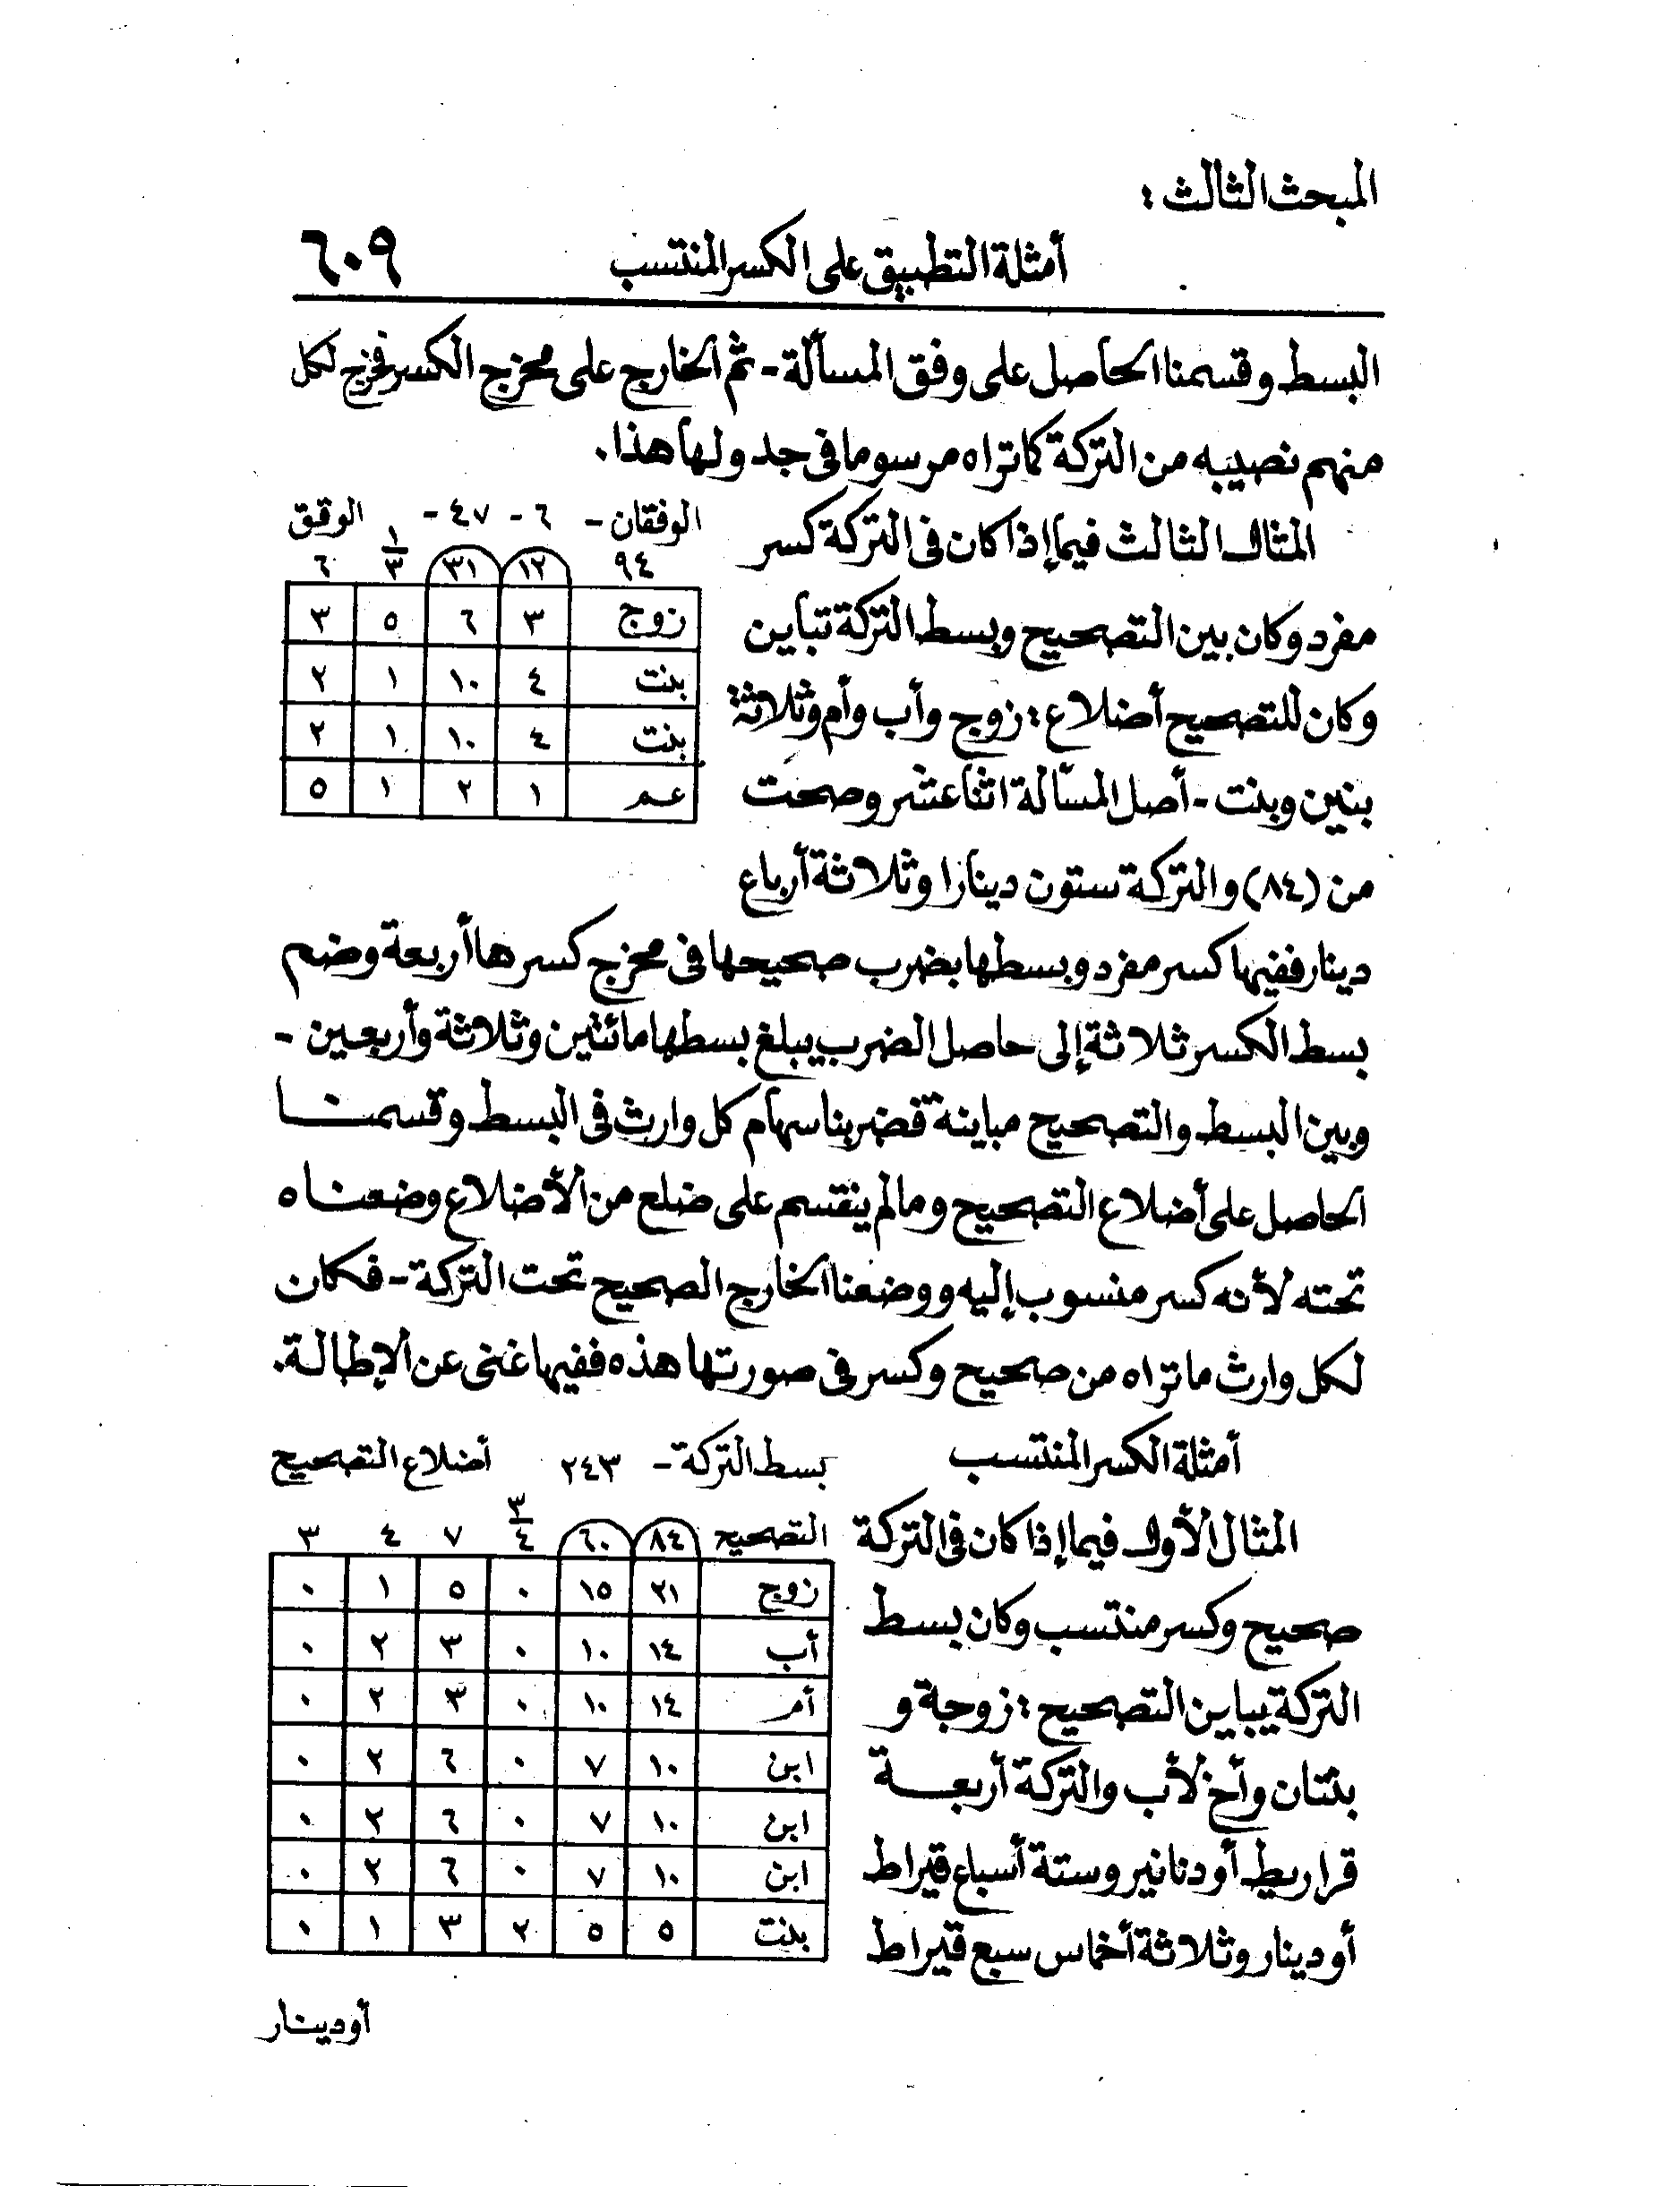 المبحث الثالث :
أمثلة التطبيق على الكسر المنتسب ٦٠٩
البسط وقسمنا الحاصل على وفق المسألة - ثم الخارج على مخرج الكسر فخرج لكل
منهم نصيبه من التركة كما تراه مرسوما في جدولها هذا .
المثال الثالث فيما إذا كان في التركة كسر
مفرد وكان بين التصحيح وبسط التركة تباين
وكان للتصحيح أضلاع : زوج وأب وأم وثلاثة
بنين وبنت - أصل المسألة اثنا عشر وصحت
من (٨٤) والتركة ستون دينارا وثلاثة أرباع
الوفقان - ٦ - ٤٧ - الوفق
٩٤ ١٢ ٣١ ١/٣ ٦
زوج ٣ ٦ ٥ ٣
بنت ٤ ١٠ ١ ٢
بنت ٤ ١٠ ١ ٢
عم ١ ٢ ١ ٥
دينار ففيها كسر مفرد وبسطها بضرب صحيحها في مخرج كسرها أربعة وضم
بسط الكسر ثلاثة إلى حاصل الضرب يبلغ بسطها مائتين وثلاثة وأربعين -
وبين البسط والتصحيح مباينة فضربنا سهام كل وارث في البسط وقسمنا
الحاصل على أضلاع التصحيح ومالم ينقسم على ضلع من الأضلاع وضعناه
تحته لأنه كسر منسوب إليه ووضعنا الخارج الصحيح تحت التركة - فكان
لكل وارث ما تراه من صحيح وكسر في صورتها هذه ففيها غنى عن الإطالة .
أمثلة الكسر المنتسب
المثال الأول فيما إذا كان في التركة
صحيح وكسر منتسب وكان بسط
التركة يباين التصحيح : زوجة و
بنتان وأخ لأب والتركة أربعة
قراريط أو دنانير وستة أسباع قيراط
أو دينار وثلاثة أخماس سبع قيراط
بسط التركة - ٢٤٣ أضلاع التصحيح
التصحيح ٨٤ ٦٠ ٣/٤ ٧ ٤ ٣
زوج ٢١ ١٥ ٠ ٥ ١ ٠
أب ١٤ ١٠ ٠ ٣ ٢ ٠
أم ١٤ ١٠ ٠ ٣ ٢ ٠
ابن ١٠ ٧ ٠ ٦ ٢ ٠
ابن ١٠ ٧ ٠ ٦ ٢ ٠
ابن ١٠ ٧ ٠ ٦ ٢ ٠
بنت ٥ ٥ ٢ ٣ ١ ٠
أو دينار